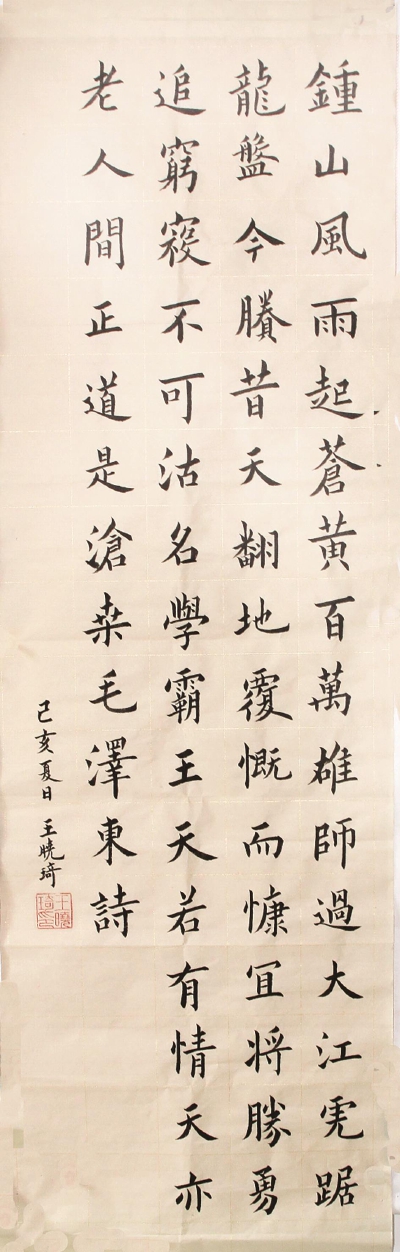 鍾山風雨起蒼黃百萬雄師過大江虎踞
龍盤今勝昔天翻地覆慨而慷宜将勝勇
追窮寇不可沽名學霸王天若有情天亦
老人間正道是滄桑毛澤東詩
己亥夏日王曉琦